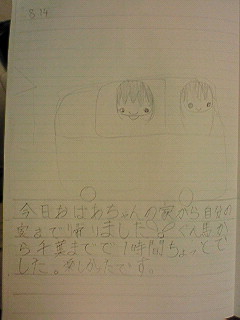 8 14
今日おばあちゃんの家から自分の
家まで帰りました。ぐん馬か
ら千葉まで1時間ちょっとで
した。楽しかったです。